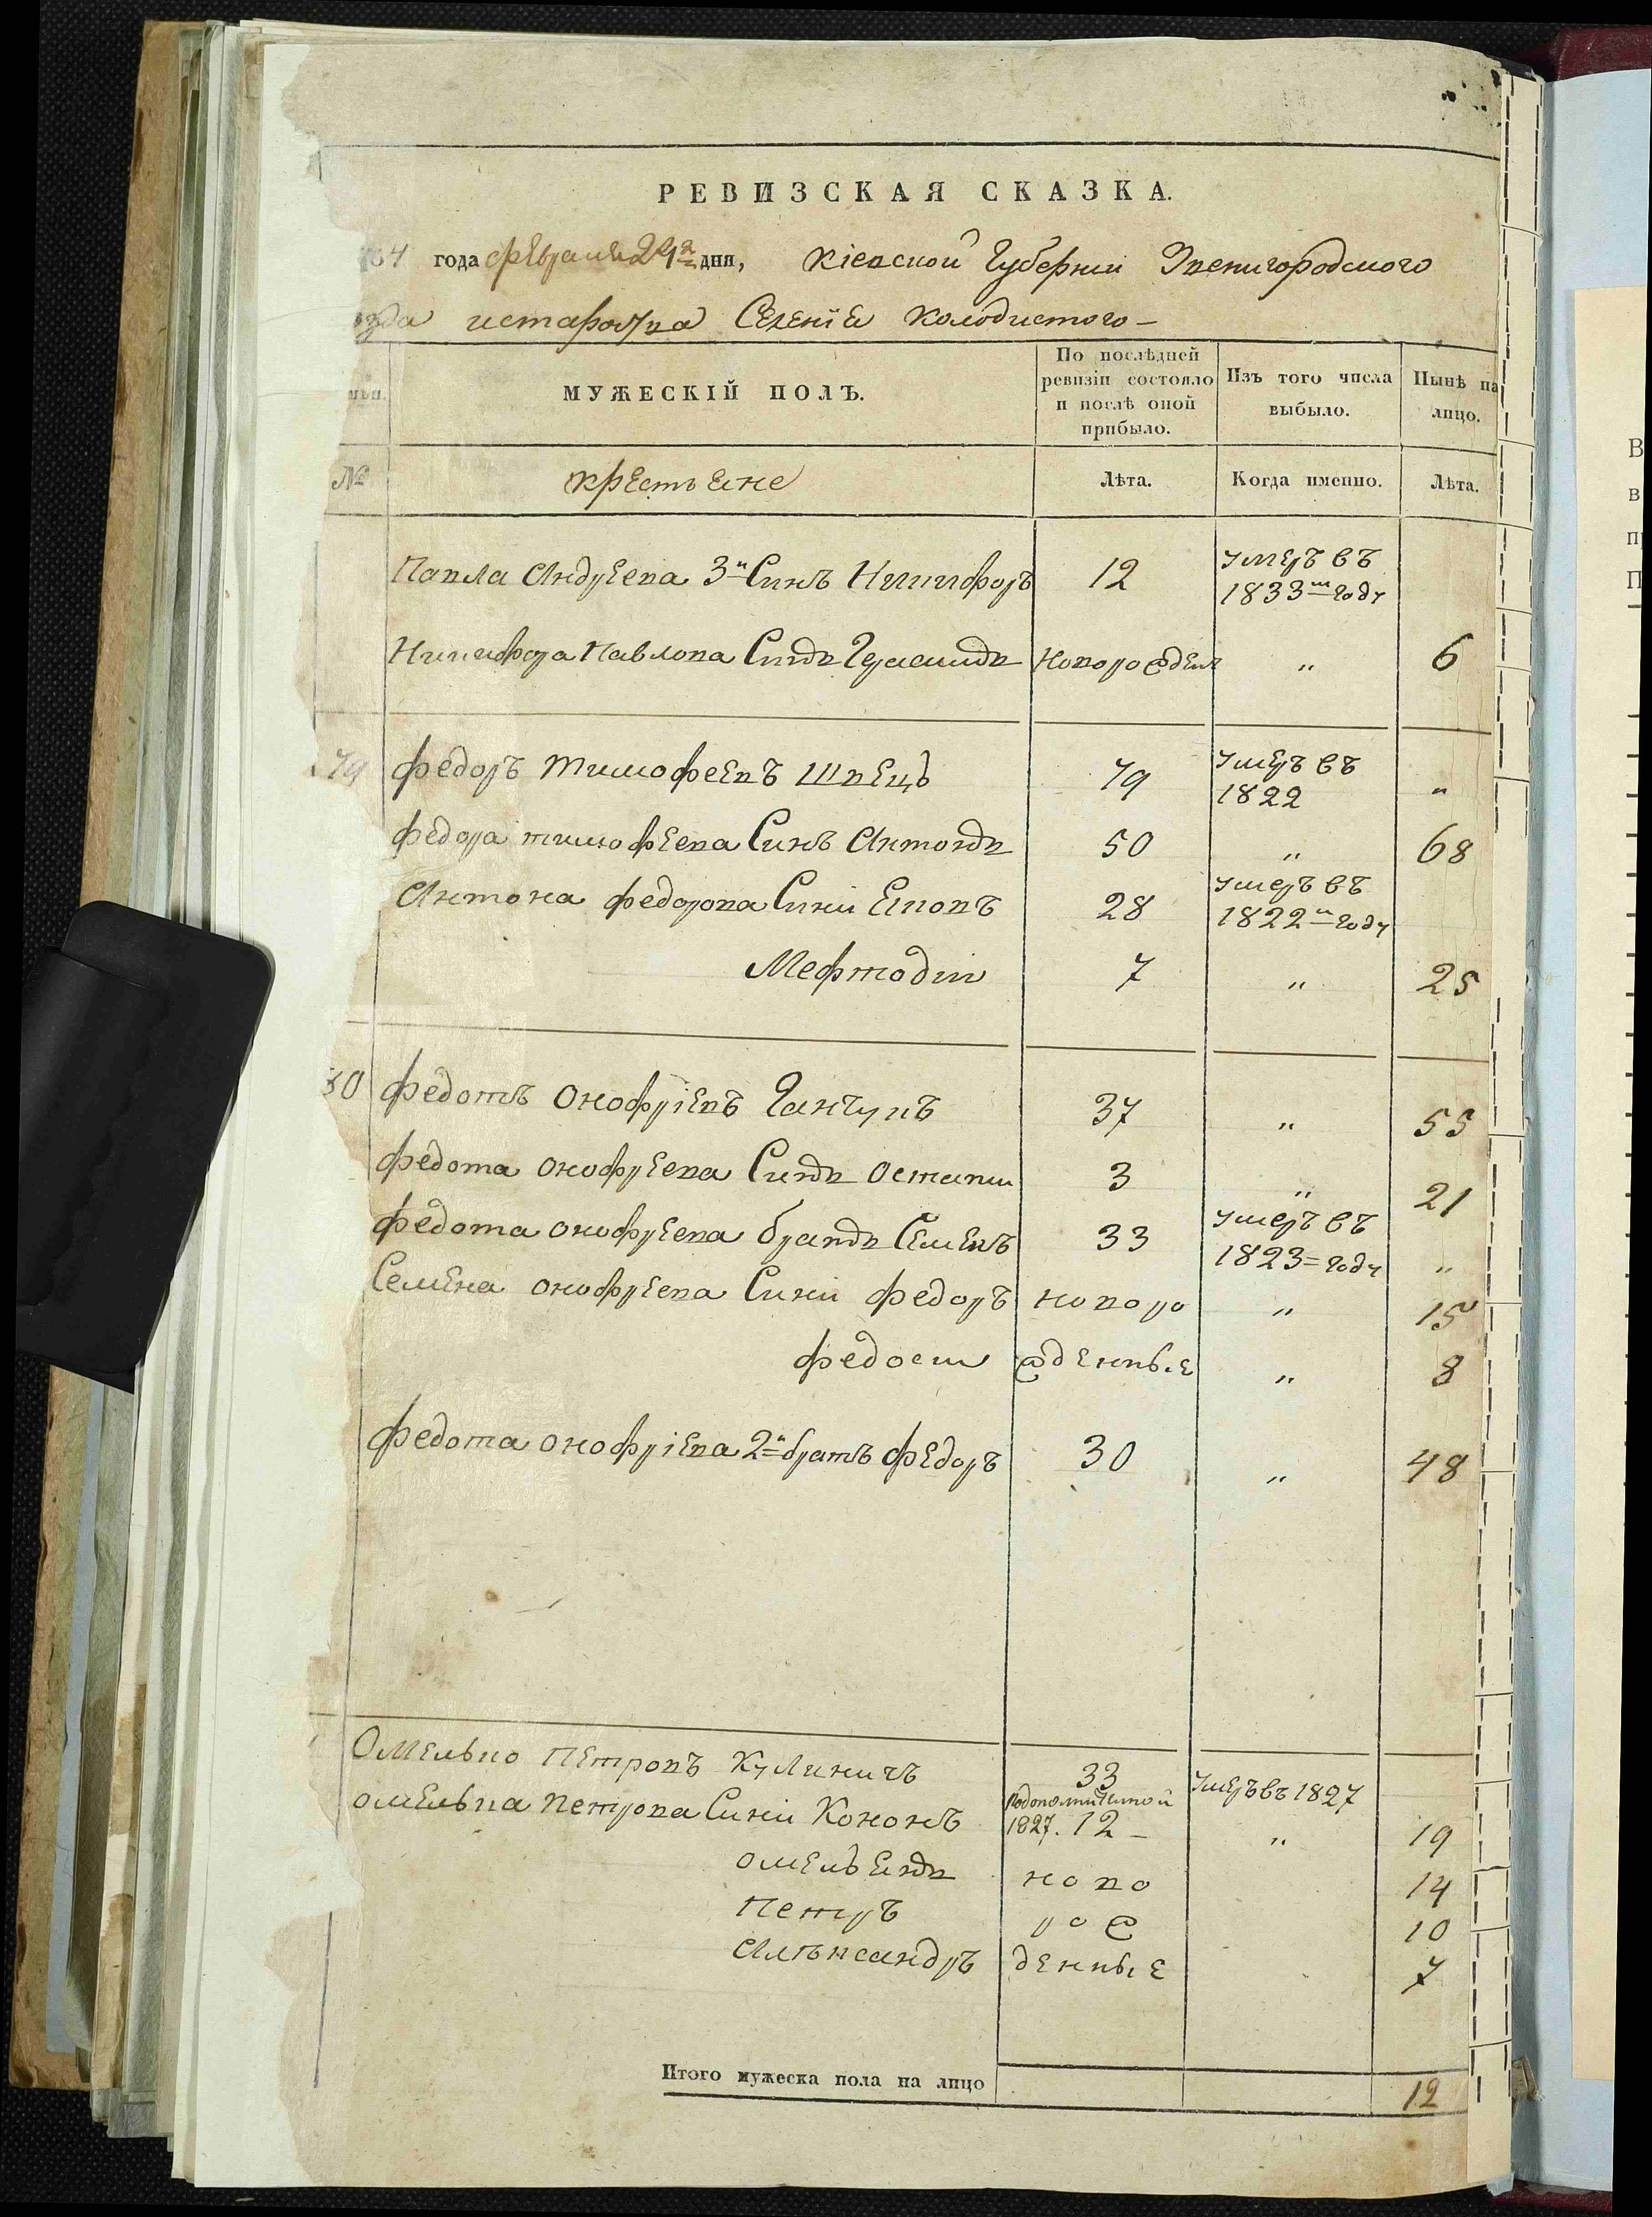 РЕВИЗСКАЯ СКАЗКА.
года февраля 24 дня, Кіевской Губерніи Звенигородского
старoства Селеніе Колодистого
МУЖЕСКІЙ ПОЛЪ.
По послѣдней ревизіи состояло и послѣ оной прибыло.
Изъ того числа выбыло.
Нынѣ на лицо.
№ крестьяне Лѣта. Когда именно. Лѣта.
Павла Андреева 3й Синъ Никифоръ 12 умеръ въ 1833м году
Никифора Павлова Синъ Герасимъ Новорожден „ 6
Федоръ Тимофеевъ Швецъ 79 умеръ въ 1822 „
Федора Тимофеева Синъ Антонъ 50 „ 68
Антона Федорова Сини Яковъ 28 умеръ въ 1822м году
Мефтодіи 7 „ 25
30 Федотъ Онофріевъ Ганчукъ 37 „ 55
Федота Онофреева Синъ Остапъ 3 „ 21
Федота Онофреева братъ Семенъ 33 умеръ въ 1823 году „
Семена Онофреева Сини Федоръ новоро „ 15
Федоси жденные „ 8
Федота Онофріева 2й братъ Федоръ 30 „ 48
Омелько Петровъ Кулиничъ 33 умеръ въ 1827
Омелька Петрова Сини Кононъ 1827. 12 „ 19
Омельянъ ново 14
Петръ рож 10
Алѣксандръ денные 7
Итого мужеска пола на лицо 12